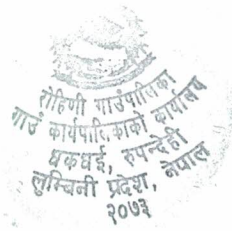 रोहिणी गाउंपालिका
गाउं कार्यपालिकाको कार्यालय
धकधई, रुपन्देही
लुम्बिनी प्रदेश, नेपाल
२०७३